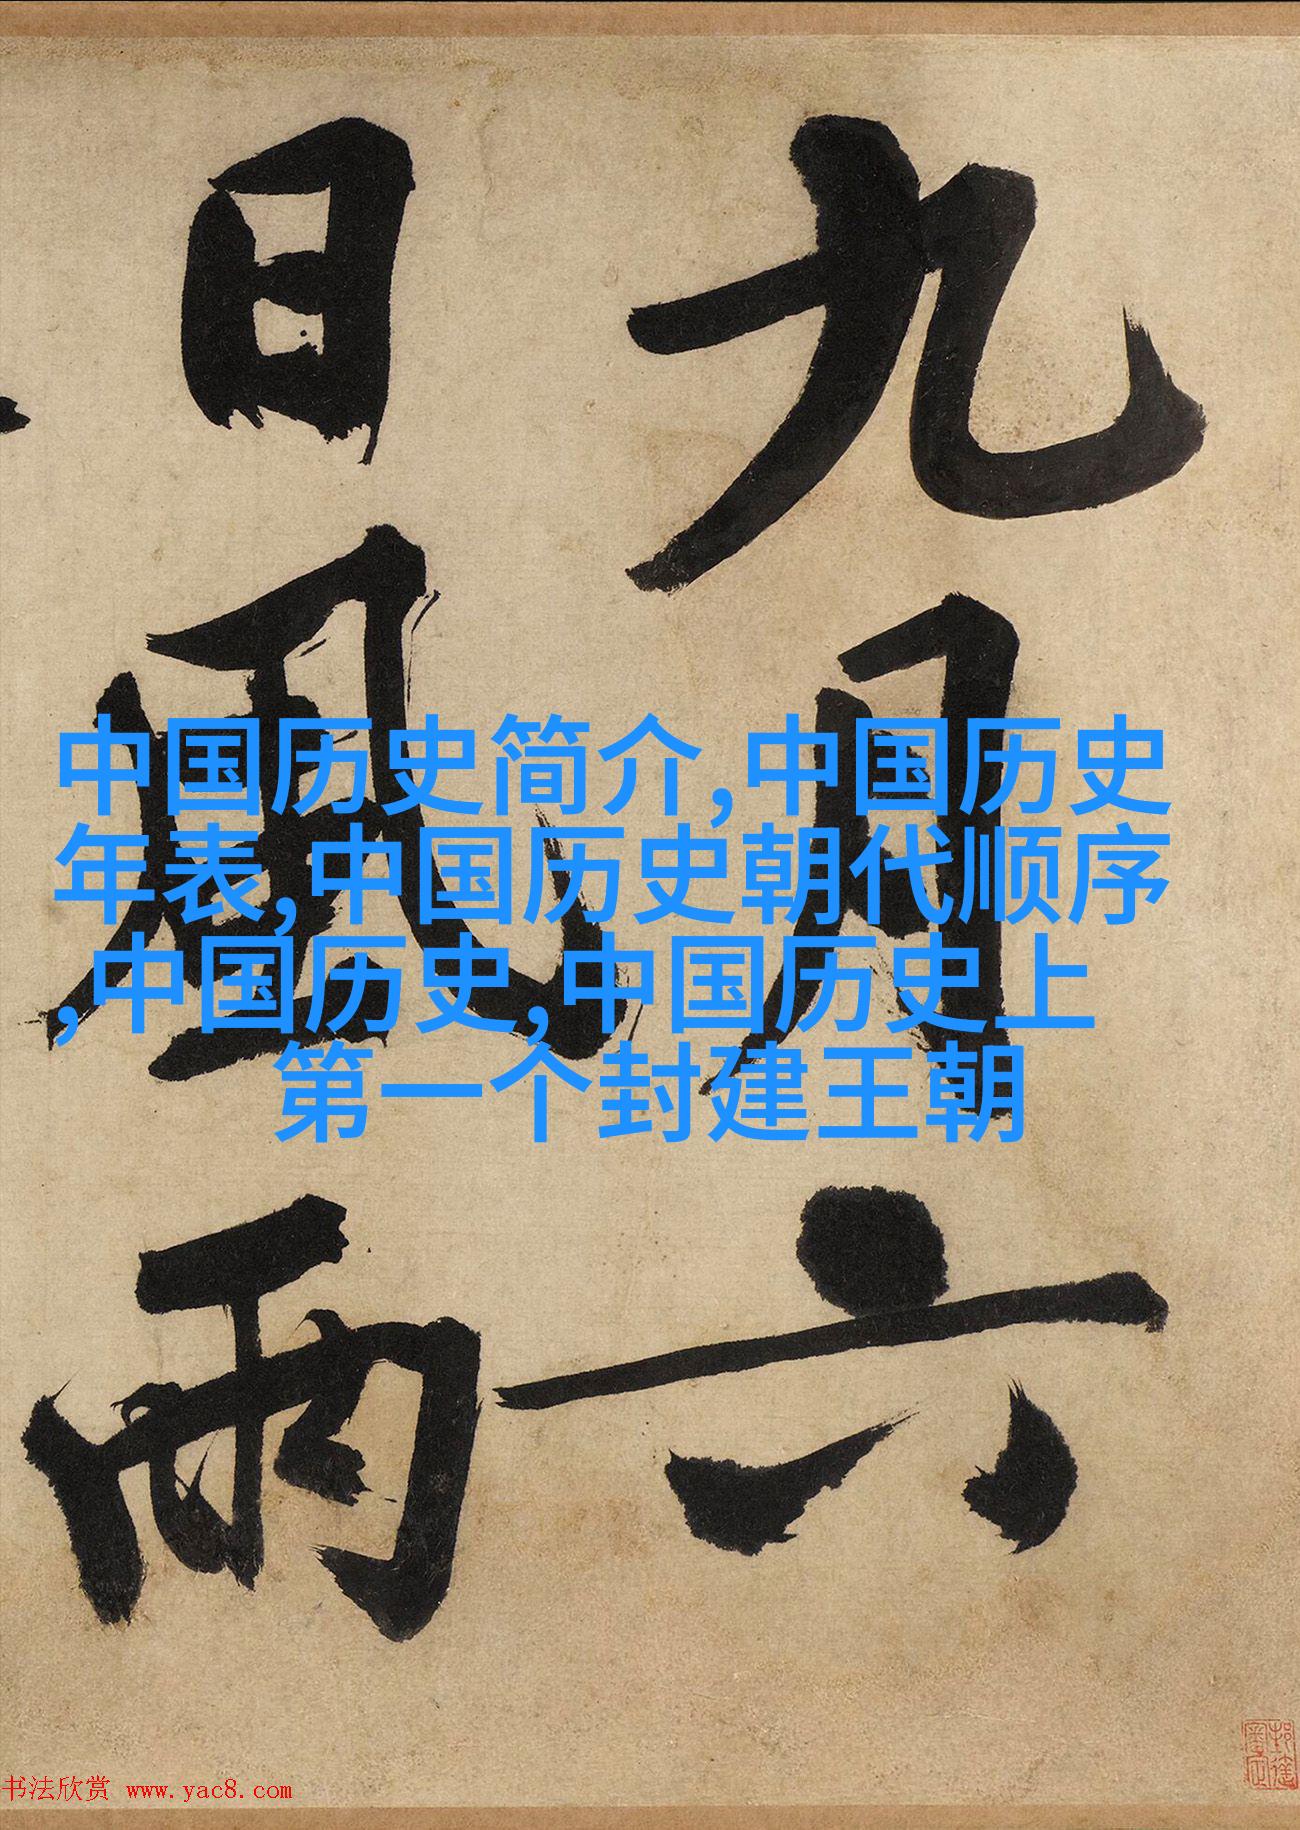 九月六
日風雨
中国历史简介,中国历史
年表,中国历史朝代顺序
,中国历史,中国历史上
第一个封建王朝
书法欣赏 www.yac8.com